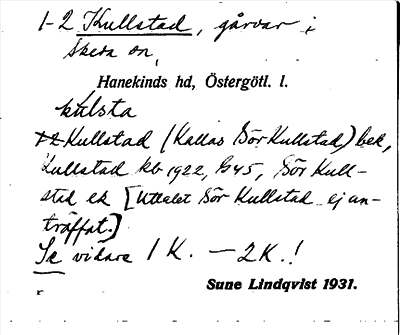 1-2 Kullstad, gårdar i
Skeda sn,
Hanekinds hd, Östergötl. l.
kulsta
1-2 Kullstad (Kallas Sör Kullstad) bek,
Kullstad kb 1922, G45, Sör Kull-
stad ek [Uttalet Sör Kullstad ej an-
träffat.]
Se vidare 1 K. — 2K.!
Sune Lindqvist 1931.